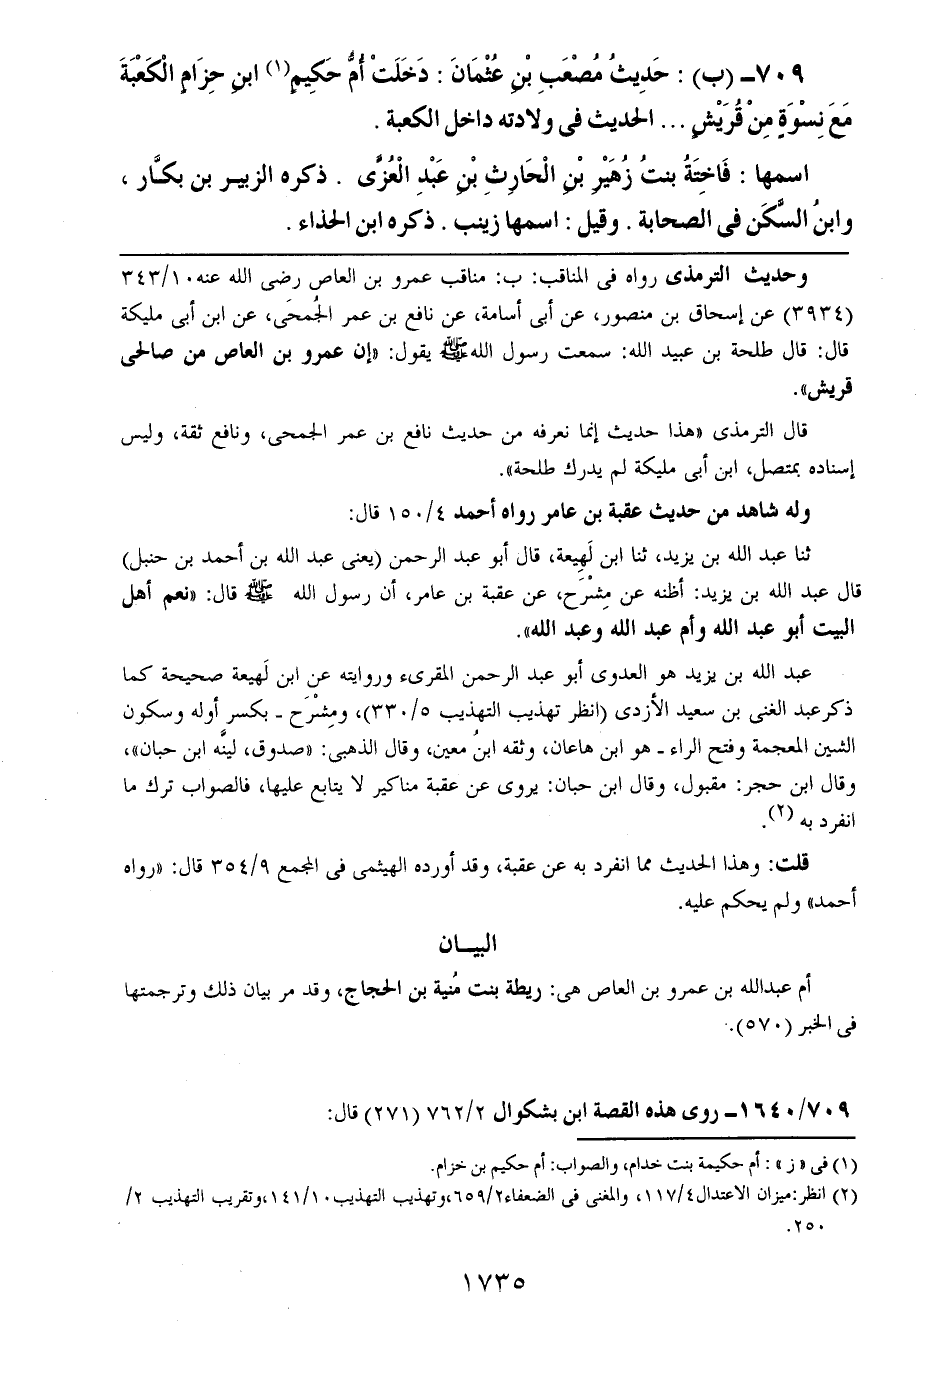 ٧٠٩ـ (ب) : حَدِيثُ مُصْعَبِ بْنِ عُثْمَانَ : دَخَلَتْ أُمُّ حَكِيمِ(١) ابنِ حِزَامِ الْكَعْبَةَ
مَعَ نِسْوَةٍ مِنْ قُرَيْشٍ ... الحديث فى ولادته داخل الكعبة .
اسمها : فَاخِتَةُ بنتُ زُهَيْرِ بْنِ الْحَارِثِ بْنِ عَبْدِ الْعُزَّى . ذكره الزبير بن بكَّار ،
وابنُ السَّكَن فى الصحابة . وقيل : اسمها زينب . ذكره ابن الحذاء .
وحديث الترمذى رواه فى المناقب: ب: مناقب عمرو بن العاص رضى الله عنه ٣٤٣/١٠
(٣٩٣٤) عن إسحاق بن منصور، عن أبى أسامة، عن نافع بن عمر الجُمحَى، عن ابن أبى مليكة
قال: قال طلحة بن عبيد الله: سمعت رسول الله ﷺ يقول: «إن عمرو بن العاص من صالحى
قريش».
قال الترمذى «هذا حديث إنما نعرفه من حديث نافع بن عمر الجمحى، ونافع ثقة، وليس
إسناده بمتصل، ابن أبى مليكة لم يدرك طلحة».
وله شاهد من حديث عقبة بن عامر رواه أحمد ١٥٠/٤ قال:
ثنا عبد الله بن يزيد، ثنا ابن لَهِيعة، قال أبو عبد الرحمن (يعنى عبد الله بن أحمد بن حنبل)
قال عبد الله بن يزيد: أظنه عن مِشْرَح، عن عقبة بن عامر، أن رسول الله ﷺ قال: «نعم أهل
البيت أبو عبد الله وأم عبد الله وعبد الله».
عبد الله بن يزيد هو العدوى أبو عبد الرحمن المقرىء وروايته عن ابن لَهيعة صحيحة كما
ذكرعبد الغنى بن سعيد الأزدى (انظر تهذيب التهذيب ٣٣٠/٥)، ومِشْرَح ـ بكسر أوله وسكون
الشين المعجمة وفتح الراء ـ هو ابن هاعان، وثقه ابنُ معين، وقال الذهبى: «صدوق، لينَّه ابن حبان»،
وقال ابن حجر: مقبول، وقال ابن حبان: يروى عن عقبة مناكير لا يتابع عليها، فالصواب ترك ما
انفرد به (٢).
قلت: وهذا الحديث مما انفرد به عن عقبة، وقد أورده الهيثمى فى المجمع ٣٥٤/٩ قال: «رواه
أحمد» ولم يحكم عليه.
البيــان
أم عبدالله بن عمرو بن العاص هى: ريطة بنت مُنية بن الحجاج، وقد مر بيان ذلك وترجمتها
فى الخبر (٥٧٠).
١٦٤٠/٧٠٩ـ روى هذه القصة ابن بشكوال ٧٦٢/٢ (٢٧١) قال:
(١) فى «ز» : أم حكيمة بنت خدام، والصواب: أم حكيم بن خزام.
(٢) انظر:ميزان الاعتدال ١١٧/٤، والمغنى فى الضعفاء ٦٥٩/٢،وتهذيب التهذيب ١٤١/١٠،وتقريب التهذيب ٢/
٢٥٠.
١٧٣٥